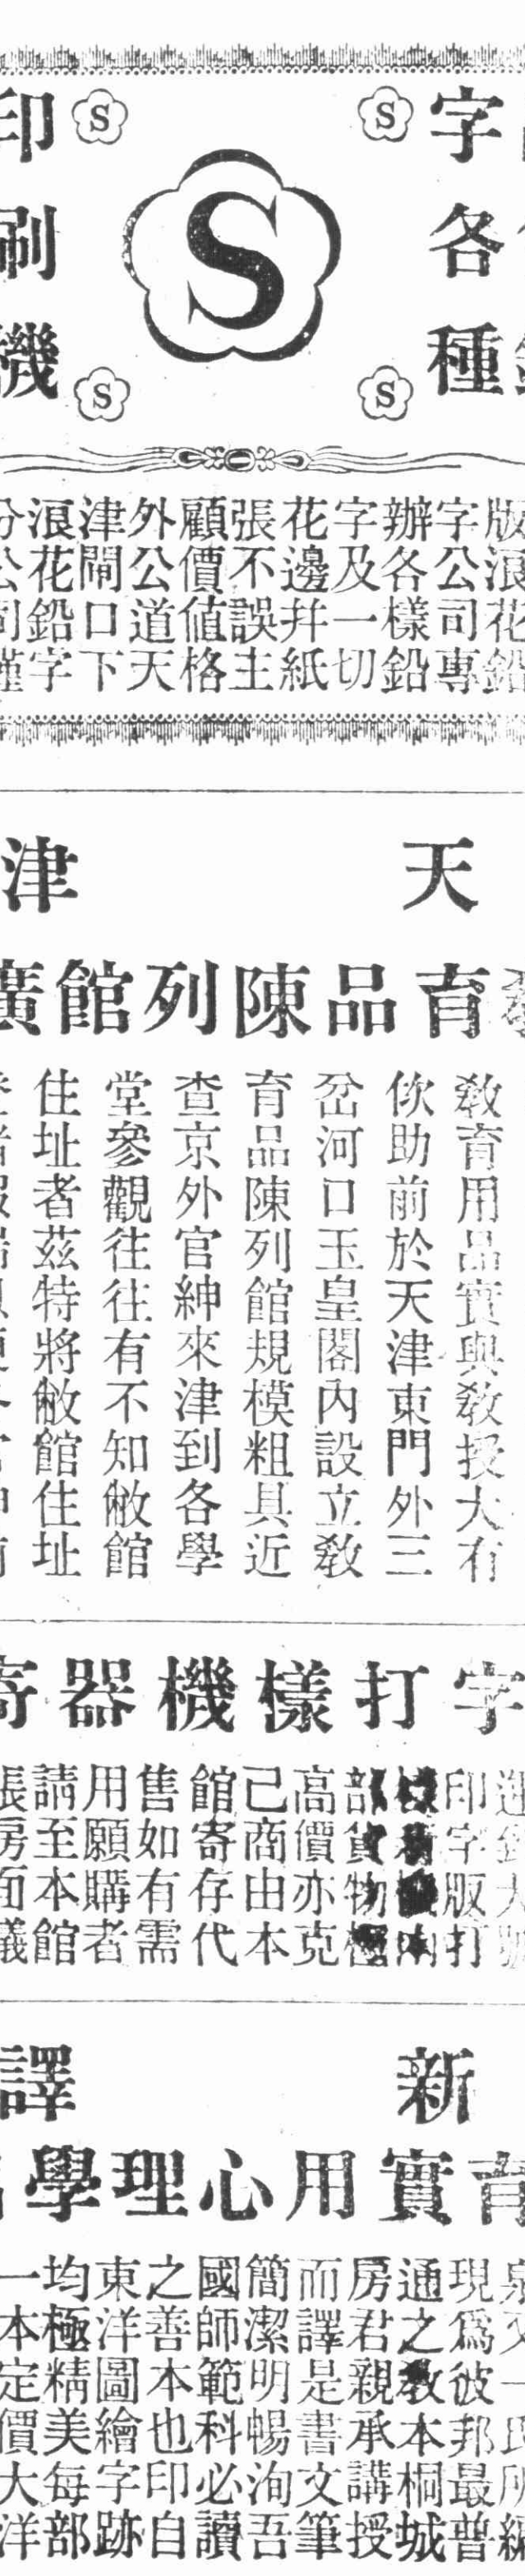 字各種
S
S
S
S
S
印刷機
版浪花鉛
字公司專
辦各樣鉛
字及一切
花邊幷紙
張不誤主
顧價値格
外公道天
津閘口下
浪花鉛字
天津
育品陳列館廣
敎育用品實與敎授大有
佽助前於天津東門外三
岔河口玉皇閣內設立敎
育品陳列館規模粗具近
查京外官紳來津到各學
堂參觀往往有不知敝館
住址者茲特將敝館住址
字打樣機器寄
印字版打
部貨物
高價亦克
己商由本
館寄存代
售如有需
用願購者
請至本館
張房面議
新譯
育實用心理學
現爲彼邦最普
通之敎本桐城
房君親承講授
而譯是書文筆
簡潔明暢洵吾
國師範科必讀
之善本也印自
東洋圖繪字跡
均極精美每部
一本定價大洋